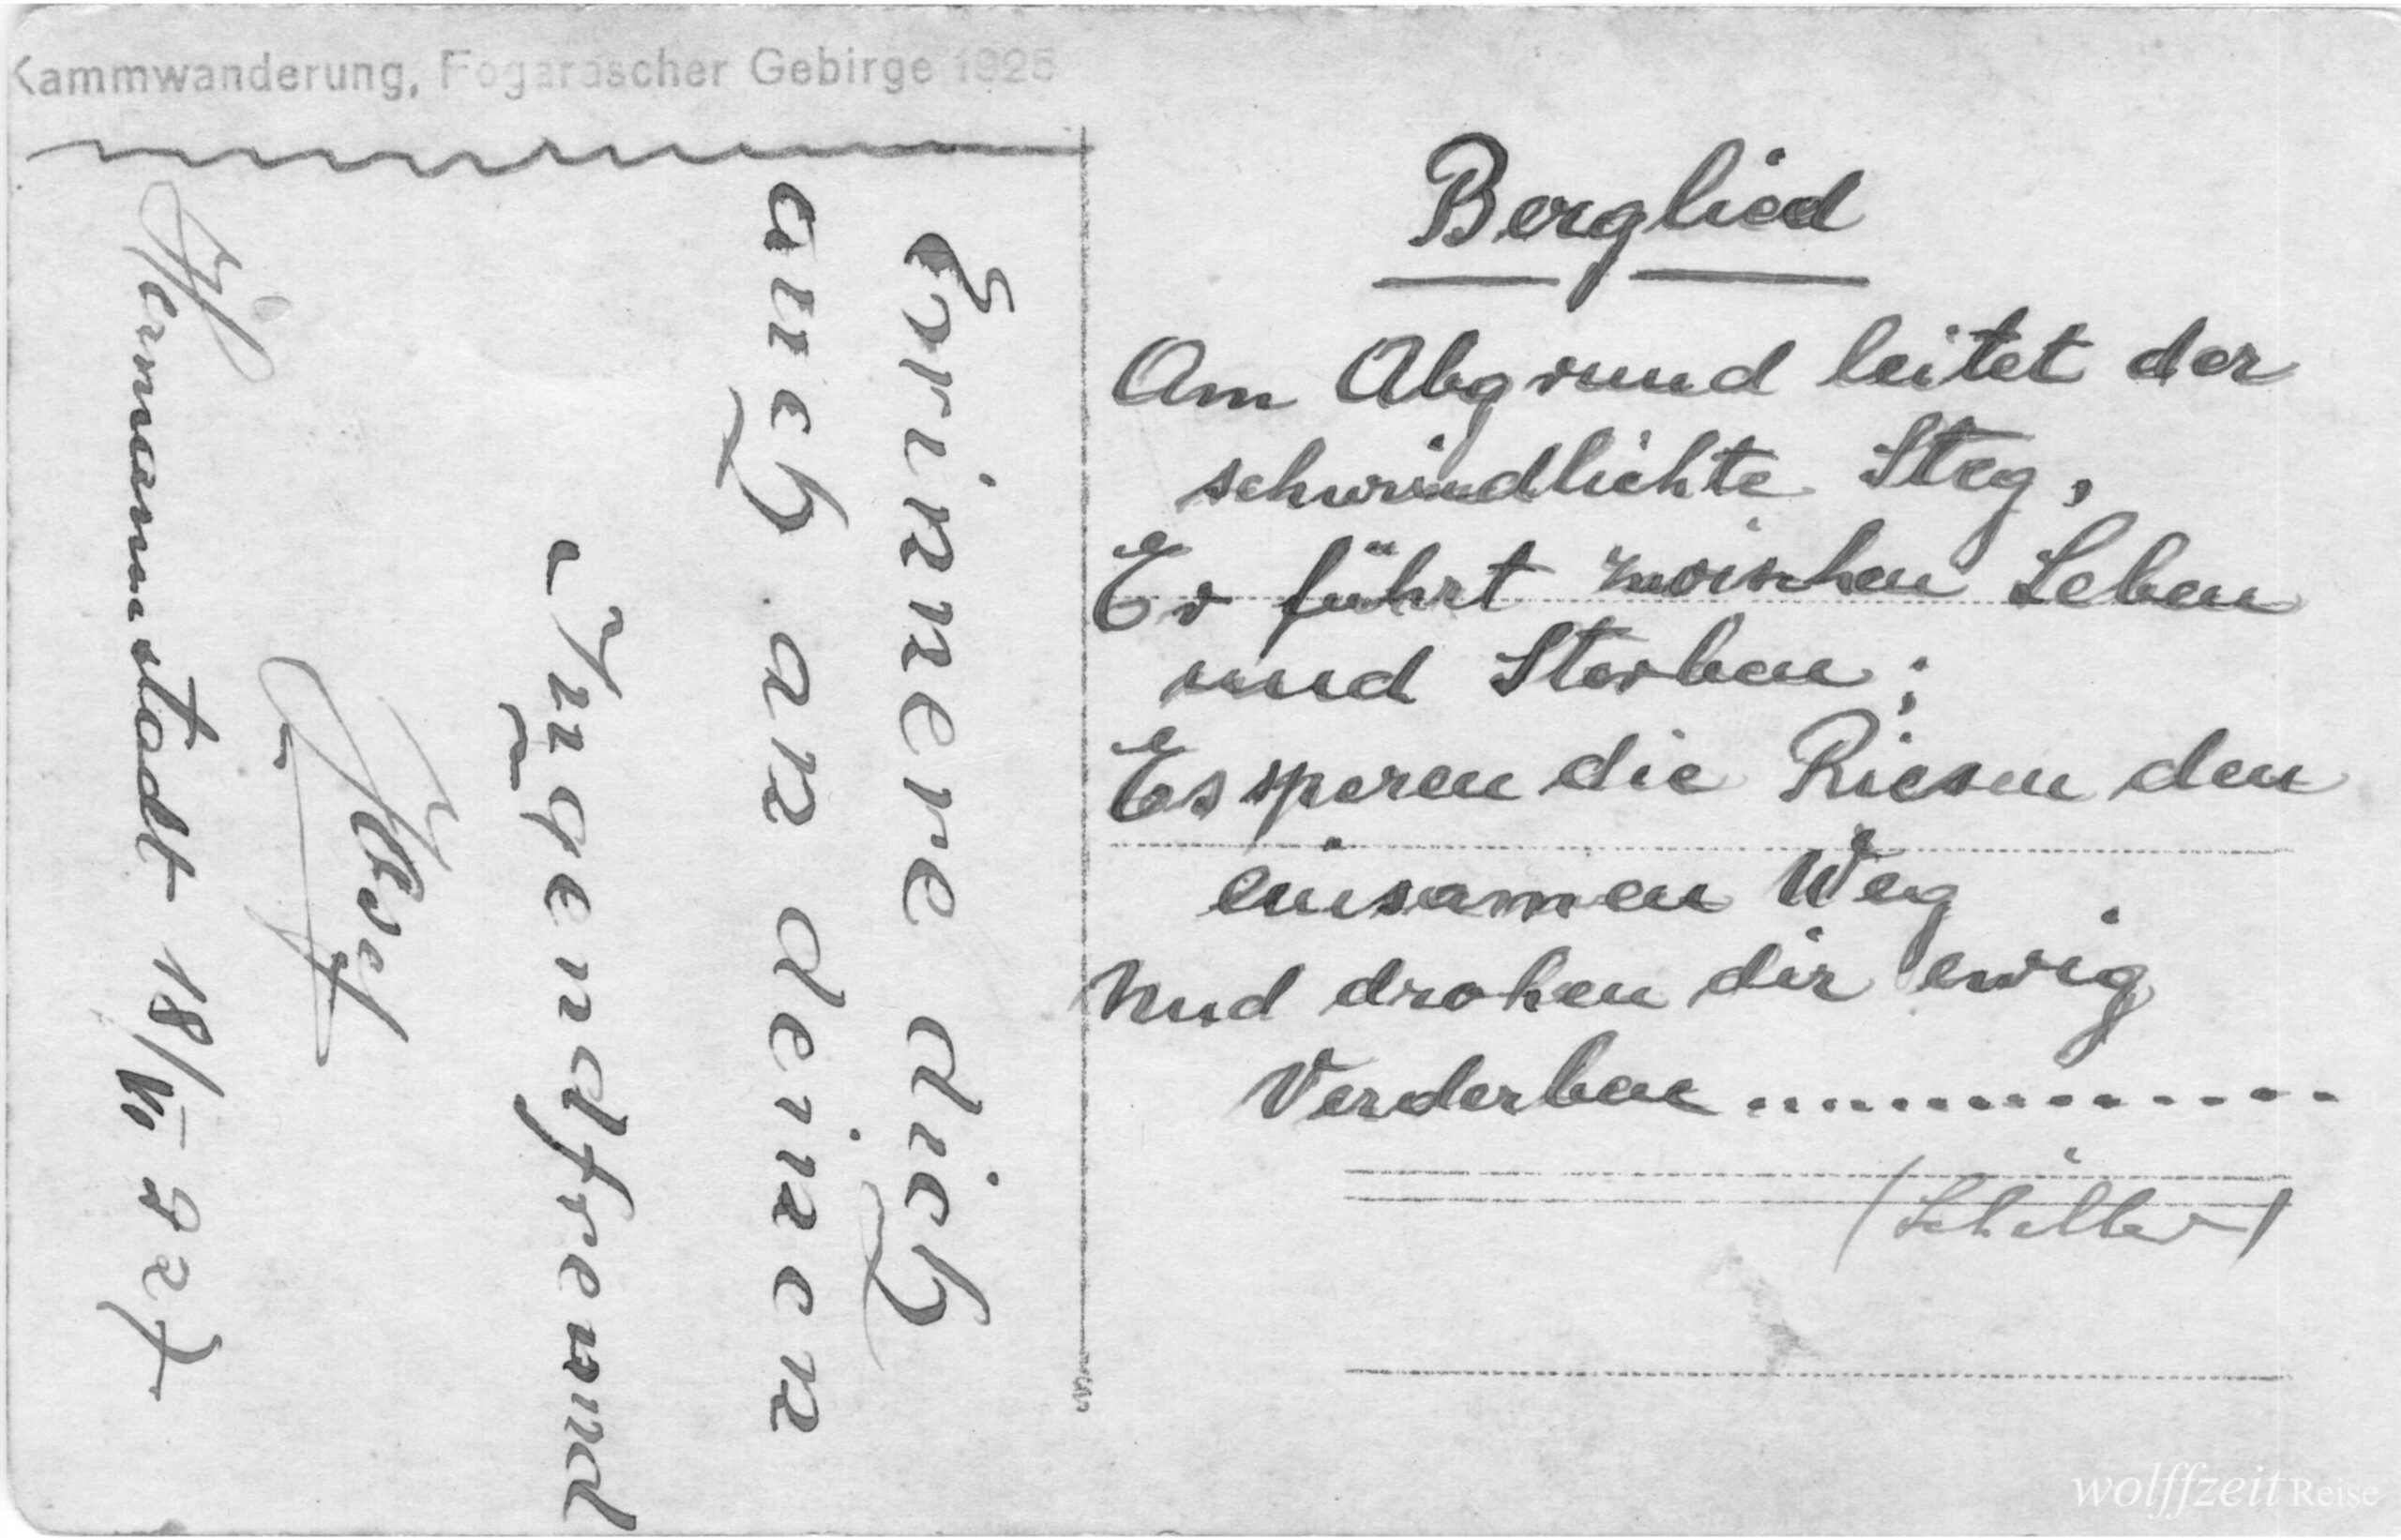 Kammwanderung, Fogarascher Gebirge 1925
Erinnere dich
auch an deinen
Jugendfreund
Hermannstadt 18/VI 927
Berglied
Am Abgrund leitet der
schwindlichte Steg,
Er führt zwischen Leben
und Sterben;
Es speren die Riesen den
einsamen Weg
Und drohen dir ewig
Verderben..............
(Schiller)
wolffzeit Reise